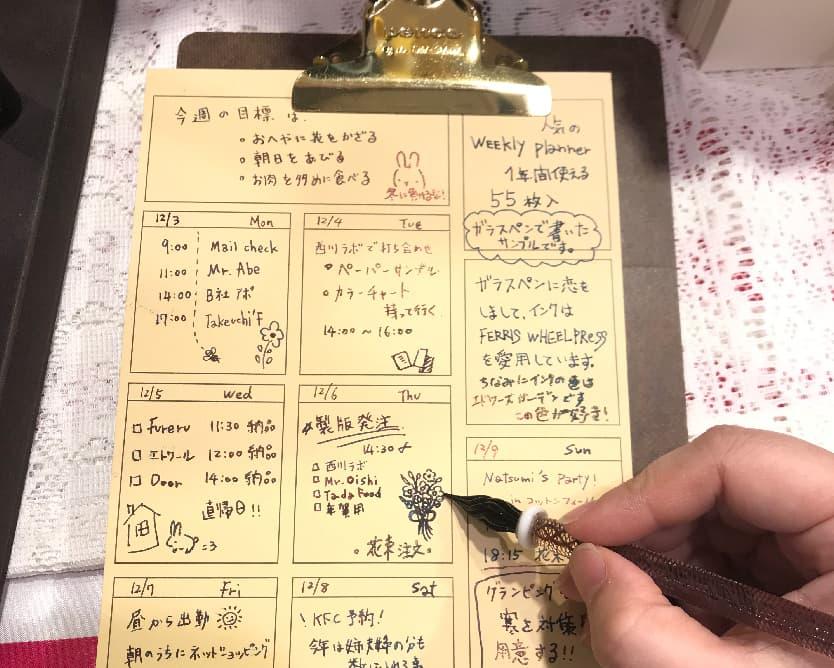 penco
今週の目標は.
。おへやに花をかざる
。朝日をあびる
。お肉を多めに食べる
人気の
Weekly planner
1年間使える
55枚入
ガラスペンで書いた
サンプルです。
12/3 Mon
9:00 Mail check
11:00 Mr. Abe
14:00 B社アポ
17:00 Takeuchi's
12/4 Tue
西川ラボで打ち合わせ
ペーパーサンプル
カラーチャート
持って行く
14:00 〜 16:00
ガラスペンに恋を
しまして、インクは
FERRIS WHEELPRESS
を愛用しています。
ちなみにインクの色は
エドワーズガーデンです
この色が好き!
12/5 Wed
□ Fureru 11:30 納品
□ エトワール 12:00 納品
□ Door 14:00 納品
直帰日!!
=3
12/6 Thu
製版発注
14:30
□ 西川ラボ
□ Mr. Oishi
□ Tada Food
□ 年賀用
。花束注文。
12/9 Sun
Natsumi's Party!
18:15
グランピング
寒さ対策
用意する!!
12/7 Fri
昼から出勤
朝のうちにネットショッピング
12/8 Sat
KFC予約!
今年は姉夫婦の分も